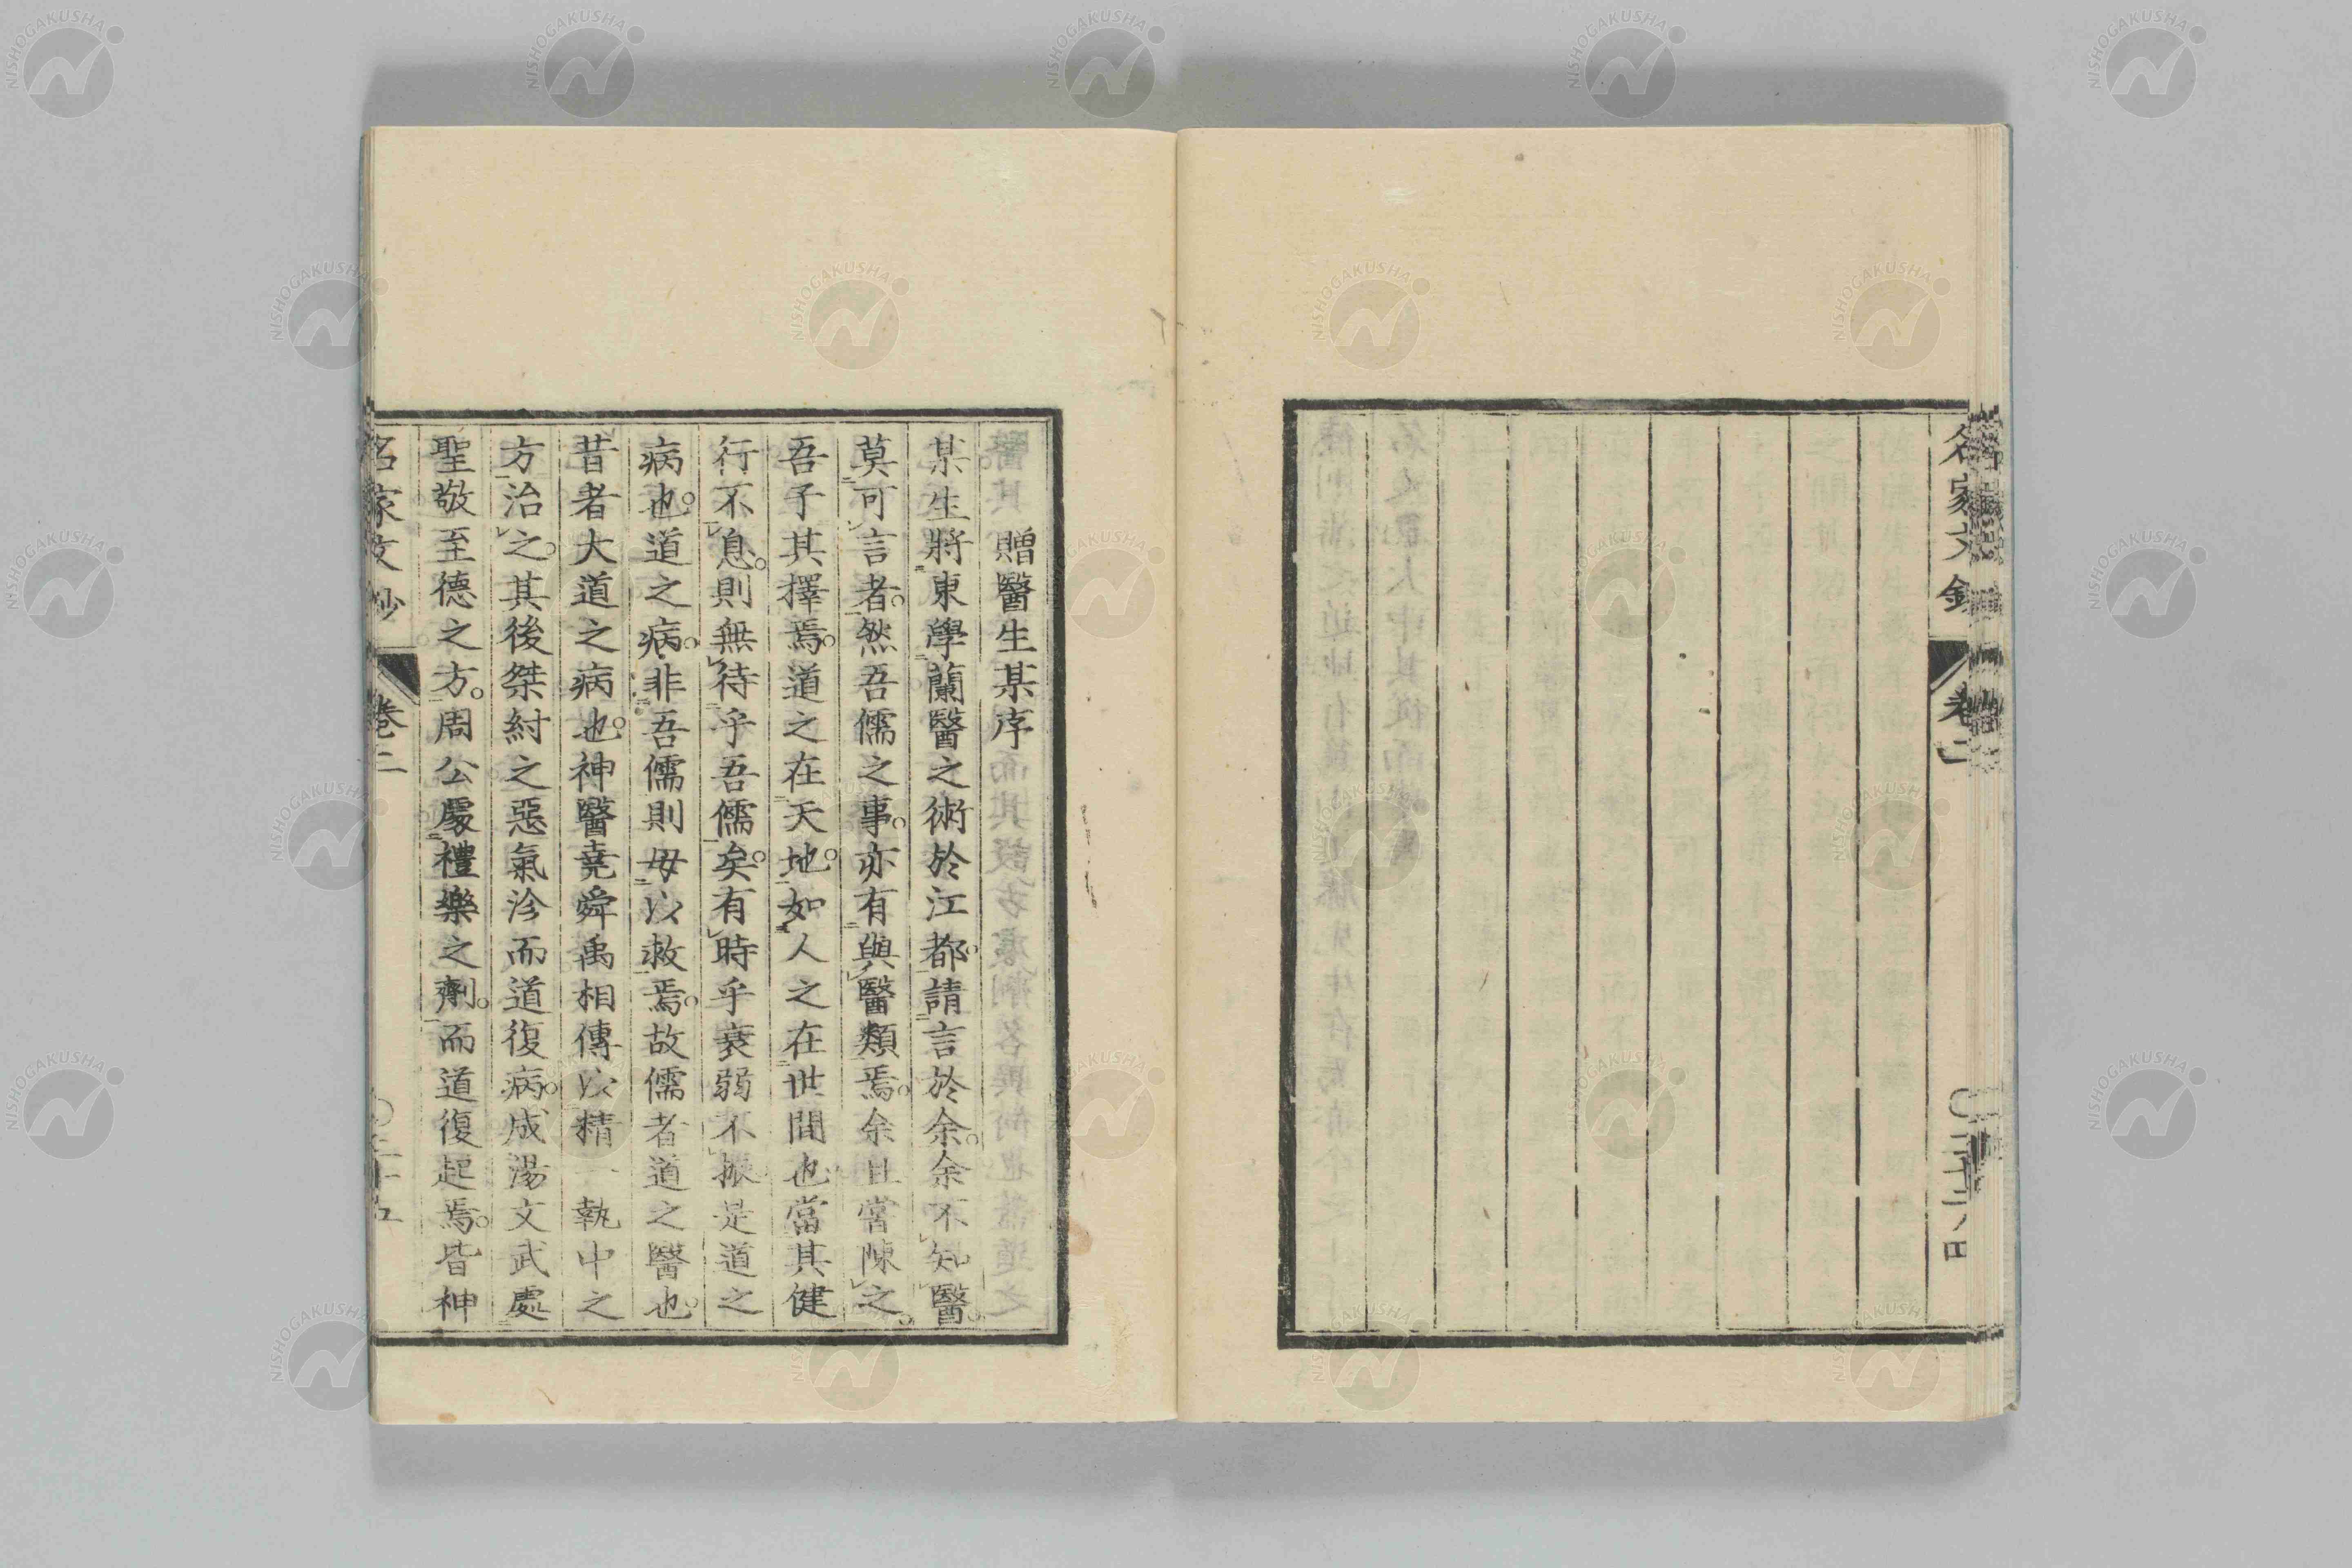 贈醫生某序
某生將東學蘭醫之術於江都。請言於余。余不知醫。
莫可言者。然吾儒之事。亦有與醫類焉。余且嘗陳之。
吾子其擇焉。道之在天地。如人之在世間也當其健
行不息。則無待乎吾儒矣。有時乎衰弱不振是道之
病也。道之病。非吾儒則毋以救焉。故儒者道之醫也。
昔者大道之病也。神醫堯舜禹相傳以精一執中之
方治之。其後桀紂之惡氣沴而道復病。成湯文武處
聖敬至德之方。周公處禮樂之劑。而道復起焉。皆神
名家文鈔 卷二
名家文鈔 卷二
NISHOGAKUSHA